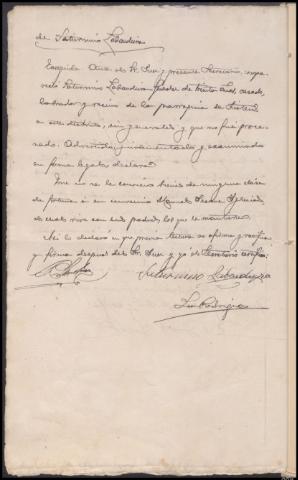 de Saturnino Labandeira
Enseguida ante el Sr. Juez y presente Secretario, compa-
reció Saturnino Labandeira de treinta años, casado,
labrador y vecino de la parroquia de
en este distrito, sin generales y que no fué proce-
sado. Advertido, juramentado y examinado
en forma legal, declara:
Que no se le conocen bienes de ninguna clase
de fortuna á su convecino Manuel
el cual vive con sus padres, los que le mantienen.
Así lo declaró en que previa lectura se afirma y ratifica
y firma después del Sr. Juez y yo el Secretario certifico.
Saturnino Labandeira